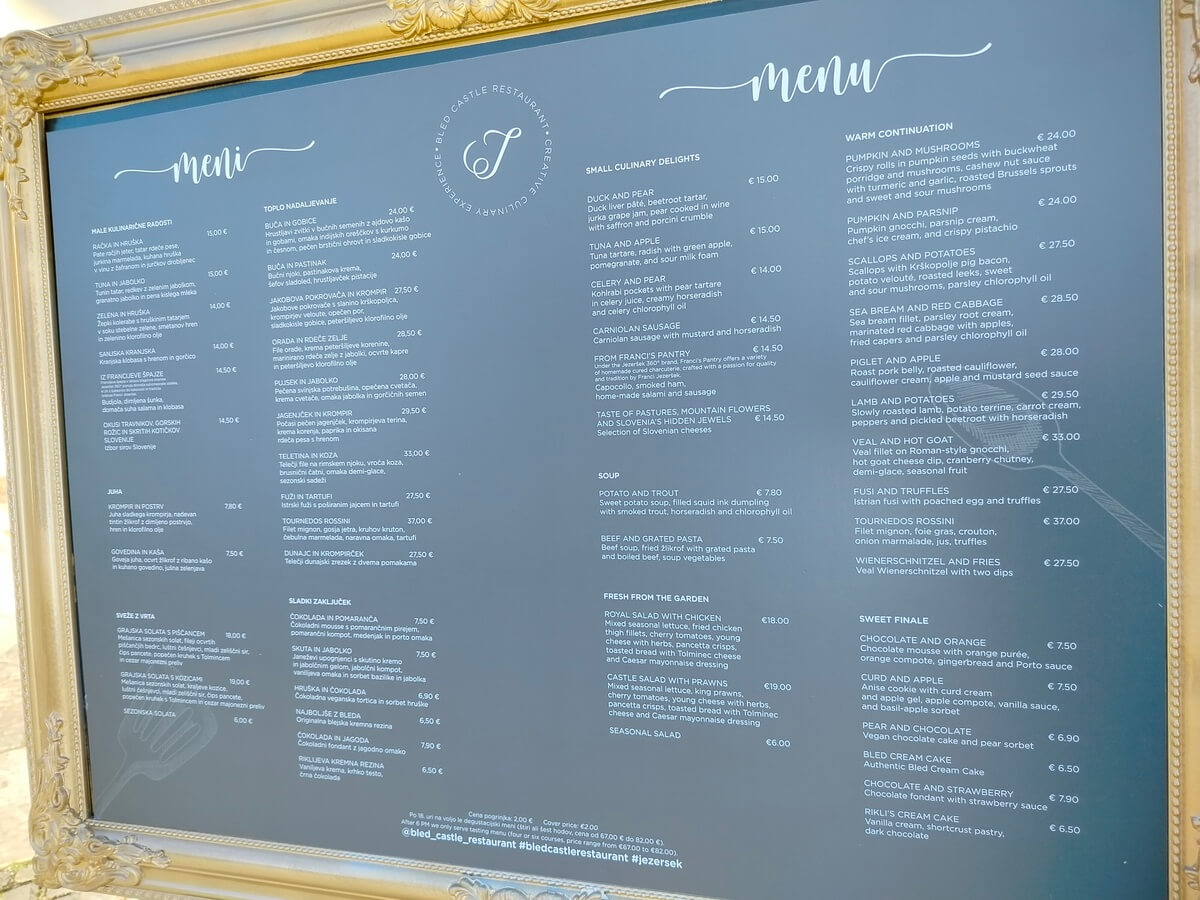 meni
MALE KULINARIČNE RADOSTI
RAČKA IN HRUŠKA 15,00 €
Pate račjih jeter, tatar rdeče pese,
jurkina marmelada, kuhana hruška
v vinu z žafranom in jurčkov drobljenec
TUNA IN JABOLKO 15,00 €
Tunin tatar, redkev z zelenim jabolkom,
granatno jabolko in pena kislega mleka
ZELENA IN HRUŠKA 14,00 €
Žepki kolerabe s hruškinim tatarjem
v soku stebelne zelene, smetanov hren
in zelenino klorofilno olje
SANJSKA KRANJSKA 14,00 €
Kranjska klobasa s hrenom in gorčico
IZ FRANCIJEVE ŠPAJZE 14,50 €
Budjola, dimljena šunka,
domača suha salama in klobasa
OKUSI TRAVNIKOV, GORSKIH 14,50 €
ROŽIC IN SKRITIH KOTIČKOV
SLOVENIJE
Izbor sirov Slovenije
JUHA
KROMPIR IN POSTRV 7,80 €
Juha sladkega krompirja, nadevan
tintin žlikrof z dimljeno postrvjo,
hren in klorofilno olje
GOVEDINA IN KAŠA 7,50 €
Goveja juha, ocvrt žlikrof z ribano kašo
in kuhano govedino, jušna zelenjava
SVEŽE Z VRTA
GRAJSKA SOLATA S PIŠČANCEM 18,00 €
Mešanica sezonskih solat, fileji ocvrtih
piščančjih bedrc, luštni češnjevci, mladi zeliščni sir,
čips pancete, popečen kruhek s Tolmincem
in cezar majonezni preliv
GRAJSKA SOLATA S KOZICAMI 19,00 €
Mešanica sezonskih solat, kraljeve kozice,
luštni češnjevci, mladi zeliščni sir, čips pancete,
popečen kruhek s Tolmincem in cezar majonezni preliv
SEZONSKA SOLATA 6,00 €
TOPLO NADALJEVANJE
BUČA IN GOBICE 24,00 €
Hrustljavi zvitki v bučnih semenih z ajdovo kašo
in gobami, omaka indijskih oreščkov s kurkumo
in česnom, pečen brstični ohrovt in sladkokisle gobice
BUČA IN PASTINAK 24,00 €
Bučni njoki, pastinakova krema,
šefov sladoled, hrustljavček pistacije
JAKOBOVA POKROVAČA IN KROMPIR 27,50 €
Jakobove pokrovače s slanino krškopoljca,
krompirjev veloute, opečen por,
sladkokisle gobice, peteršiljevo klorofilno olje
ORADA IN RDEČE ZELJE 28,50 €
File orade, krema peteršiljeve korenine,
marinirano rdeče zelje z jabolki, ocvrte kapre
in peteršiljevo klorofilno olje
PUJSEK IN JABOLKO 28,00 €
Pečena svinjska potrebušina, opečena cvetača,
krema cvetače, omaka jabolka in gorčičnih semen
JAGENJČEK IN KROMPIR 29,50 €
Počasi pečen jagenjček, krompirjeva terina,
krema korenja, paprika in okisana
rdeča pesa s hrenom
TELETINA IN KOZA 33,00 €
Telečji file na rimskem njoku, vroča koza,
brusnični čatni, omaka demi-glace,
sezonski sadeži
FUŽI IN TARTUFI 27,50 €
Istrski fuži s poširanim jajcem in tartufi
TOURNEDOS ROSSINI 37,00 €
Filet mignon, gosja jetra, kruhov kruton,
čebulna marmelada, naravna omaka, tartufi
DUNAJC IN KROMPIRČEK 27,50 €
Telečji dunajski zrezek z dvema pomakama
SLADKI ZAKLJUČEK
ČOKOLADA IN POMARANČA 7,50 €
Čokoladni mousse s pomarančnim pirejem,
pomarančni kompot, medenjak in porto omaka
SKUTA IN JABOLKO 7,50 €
Janeževi upognjenci s skutino kremo
in jabolčnim gelom, jabolčni kompot,
vanilijeva omaka in sorbet bazilike in jabolka
HRUŠKA IN ČOKOLADA 6,90 €
Čokoladna veganska tortica in sorbet hruške
NAJBOLJŠE Z BLEDA 6,50 €
Originalna blejska kremna rezina
ČOKOLADA IN JAGODA 7,90 €
Čokoladni fondant z jagodno omako
RIKLIJEVA KREMNA REZINA 6,50 €
Vanilijeva krema, krhko testo,
črna čokolada
BLED CASTLE RESTAURANT • CREATIVE CULINARY EXPERIENCE •
J
menu
SMALL CULINARY DELIGHTS
DUCK AND PEAR € 15.00
Duck liver pâté, beetroot tartar,
jurka grape jam, pear cooked in wine
with saffron and porcini crumble
TUNA AND APPLE € 15.00
Tuna tartare, radish with green apple,
pomegranate, and sour milk foam
CELERY AND PEAR € 14.00
Kohlrabi pockets with pear tartare
in celery juice, creamy horseradish
and celery chlorophyll oil
CARNIOLAN SAUSAGE € 14.50
Carniolan sausage with mustard and horseradish
FROM FRANCI'S PANTRY € 14.50
Under the Jezeršek 360° brand, Franci's Pantry offers a variety
of homemade cured charcuterie, crafted with a passion for quality
and tradition by Franci Jezeršek.
Capocollo, smoked ham,
home-made salami and sausage
TASTE OF PASTURES, MOUNTAIN FLOWERS
AND SLOVENIA'S HIDDEN JEWELS € 14.50
Selection of Slovenian cheeses
SOUP
POTATO AND TROUT € 7.80
Sweet potato soup, filled squid ink dumpling
with smoked trout, horseradish and chlorophyll oil
BEEF AND GRATED PASTA € 7.50
Beef soup, fried žlikrof with grated pasta
and boiled beef, soup vegetables
FRESH FROM THE GARDEN
ROYAL SALAD WITH CHICKEN €18.00
Mixed seasonal lettuce, fried chicken
thigh fillets, cherry tomatoes, young
cheese with herbs, pancetta crisps,
toasted bread with Tolminec cheese
and Caesar mayonnaise dressing
CASTLE SALAD WITH PRAWNS €19.00
Mixed seasonal lettuce, king prawns,
cherry tomatoes, young cheese with herbs,
pancetta crisps, toasted bread with Tolminec
cheese and Caesar mayonnaise dressing
SEASONAL SALAD €6.00
WARM CONTINUATION
PUMPKIN AND MUSHROOMS € 24.00
Crispy rolls in pumpkin seeds with buckwheat
porridge and mushrooms, cashew nut sauce
with turmeric and garlic, roasted Brussels sprouts
and sweet and sour mushrooms
PUMPKIN AND PARSNIP € 24.00
Pumpkin gnocchi, parsnip cream,
chef's ice cream, and crispy pistachio
SCALLOPS AND POTATOES € 27.50
Scallops with Krškopolje pig bacon,
potato velouté, roasted leeks, sweet
and sour mushrooms, parsley chlorophyll oil
SEA BREAM AND RED CABBAGE € 28.50
Sea bream fillet, parsley root cream,
marinated red cabbage with apples,
fried capers and parsley chlorophyll oil
PIGLET AND APPLE € 28.00
Roast pork belly, roasted cauliflower,
cauliflower cream, apple and mustard seed sauce
LAMB AND POTATOES € 29.50
Slowly roasted lamb, potato terrine, carrot cream,
peppers and pickled beetroot with horseradish
VEAL AND HOT GOAT € 33.00
Veal fillet on Roman-style gnocchi,
hot goat cheese dip, cranberry chutney,
demi-glace, seasonal fruit
FUSI AND TRUFFLES € 27.50
Istrian fusi with poached egg and truffles
TOURNEDOS ROSSINI € 37.00
Filet mignon, foie gras, crouton,
onion marmalade, jus, truffles
WIENERSCHNITZEL AND FRIES € 27.50
Veal Wienerschnitzel with two dips
SWEET FINALE
CHOCOLATE AND ORANGE € 7.50
Chocolate mousse with orange purée,
orange compote, gingerbread and Porto sauce
CURD AND APPLE € 7.50
Anise cookie with curd cream
and apple gel, apple compote, vanilla sauce,
and basil-apple sorbet
PEAR AND CHOCOLATE € 6.90
Vegan chocolate cake and pear sorbet
BLED CREAM CAKE € 6.50
Authentic Bled Cream Cake
CHOCOLATE AND STRAWBERRY € 7.90
Chocolate fondant with strawberry sauce
RIKLI'S CREAM CAKE € 6.50
Vanilla cream, shortcrust pastry,
dark chocolate
Cena pogrinjka: 2,00 € Cover price: €2.00
Po 18. uri na voljo le degustacijski meni (štiri ali šest hodov, cena od 67,00 € do 82,00 €).
After 6 PM we only serve tasting menu (four or six courses, price range from €67.00 to €82.00).
@bled_castle_restaurant #bledcastlerestaurant #jezersek